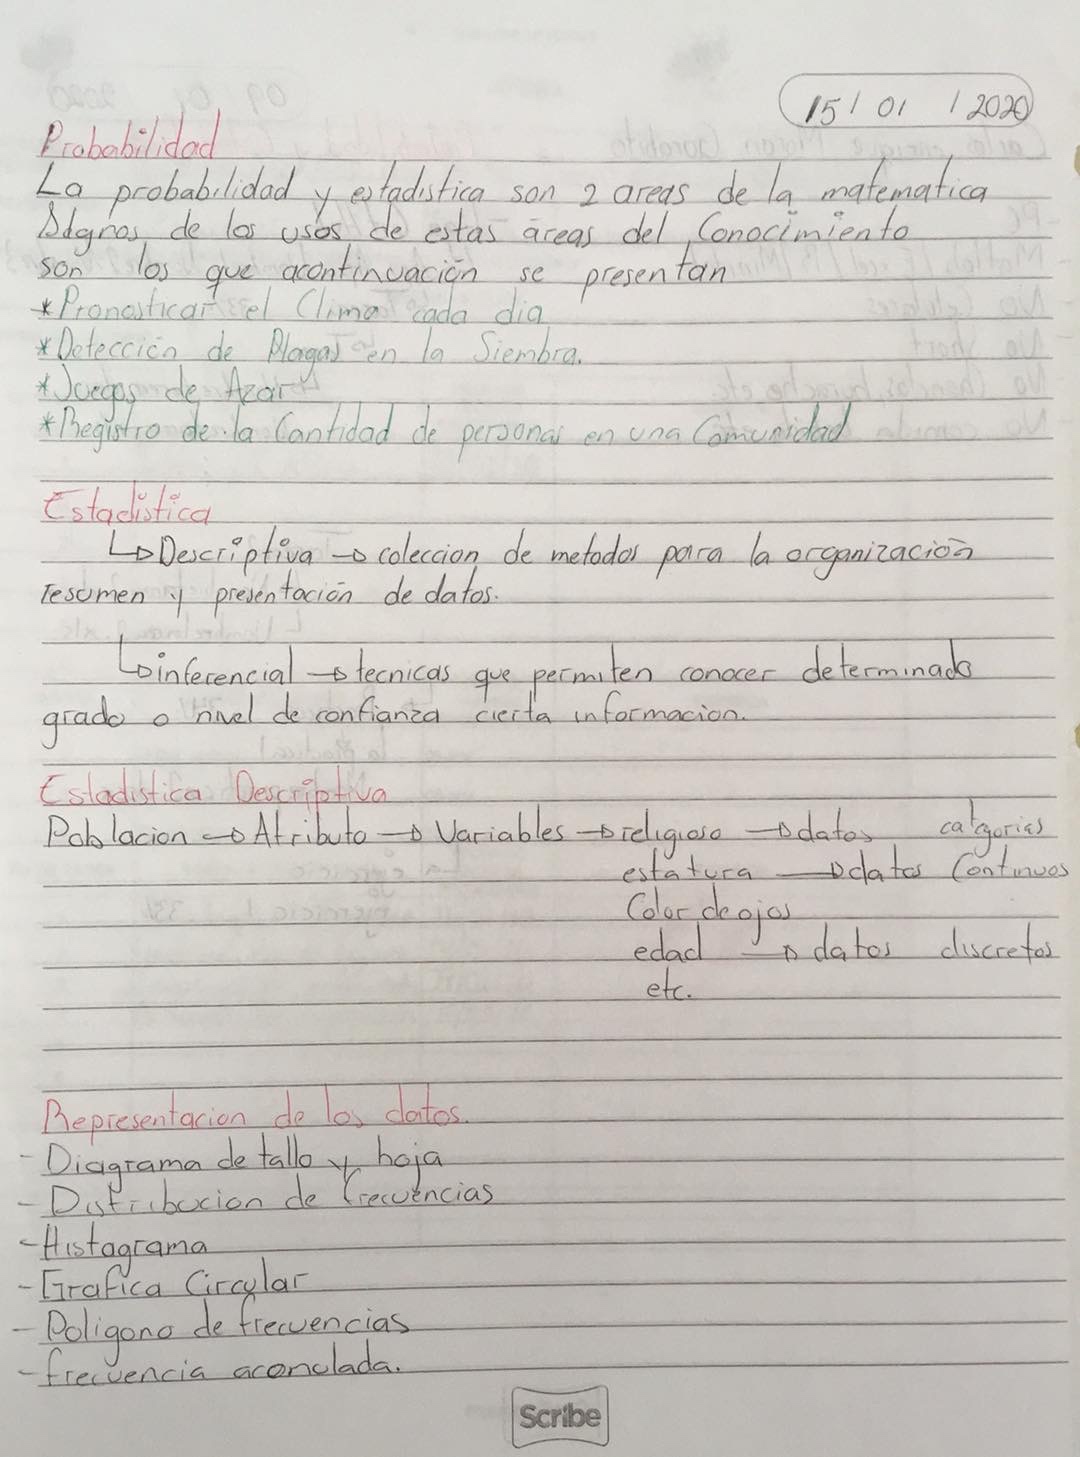 15/ 01 / 2020
Probabilidad
La probabilidad y estadistica son 2 areas de la matematica
Algnos de los usos de estas áreas del Conocimiento
son los que acontinuación se presentan
*Pronosticar el Clima cada dia
*Detección de Plagas en la Siembra.
*Juegos de Azar
*Registro de la Cantidad de personas en una Comunidad
Estadistica
Descriptiva → coleccion de metodos para la organización
resumen y presentación de datos.
inferencial → tecnicas que permiten conocer determinado
grado o nivel de confianza cierta informacion.
Estadistica Descriptiva
Poblacion → Atributo → Variables → religioso → datos categorias
estatura → datos Continuos
Color de ojos
edad → datos discretos
etc.
Representacion de los datos.
- Diagrama de tallo y hoja
- Distribucion de frecuencias
- Histagrama
- Grafica Circular
- Poligono de frecuencias
- frecuencia acomulada.
Scribe